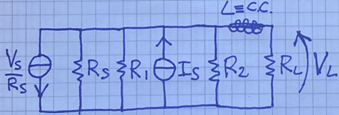 L≡C.C.
Vs/Rs Rs R1 Is R2 RL VL